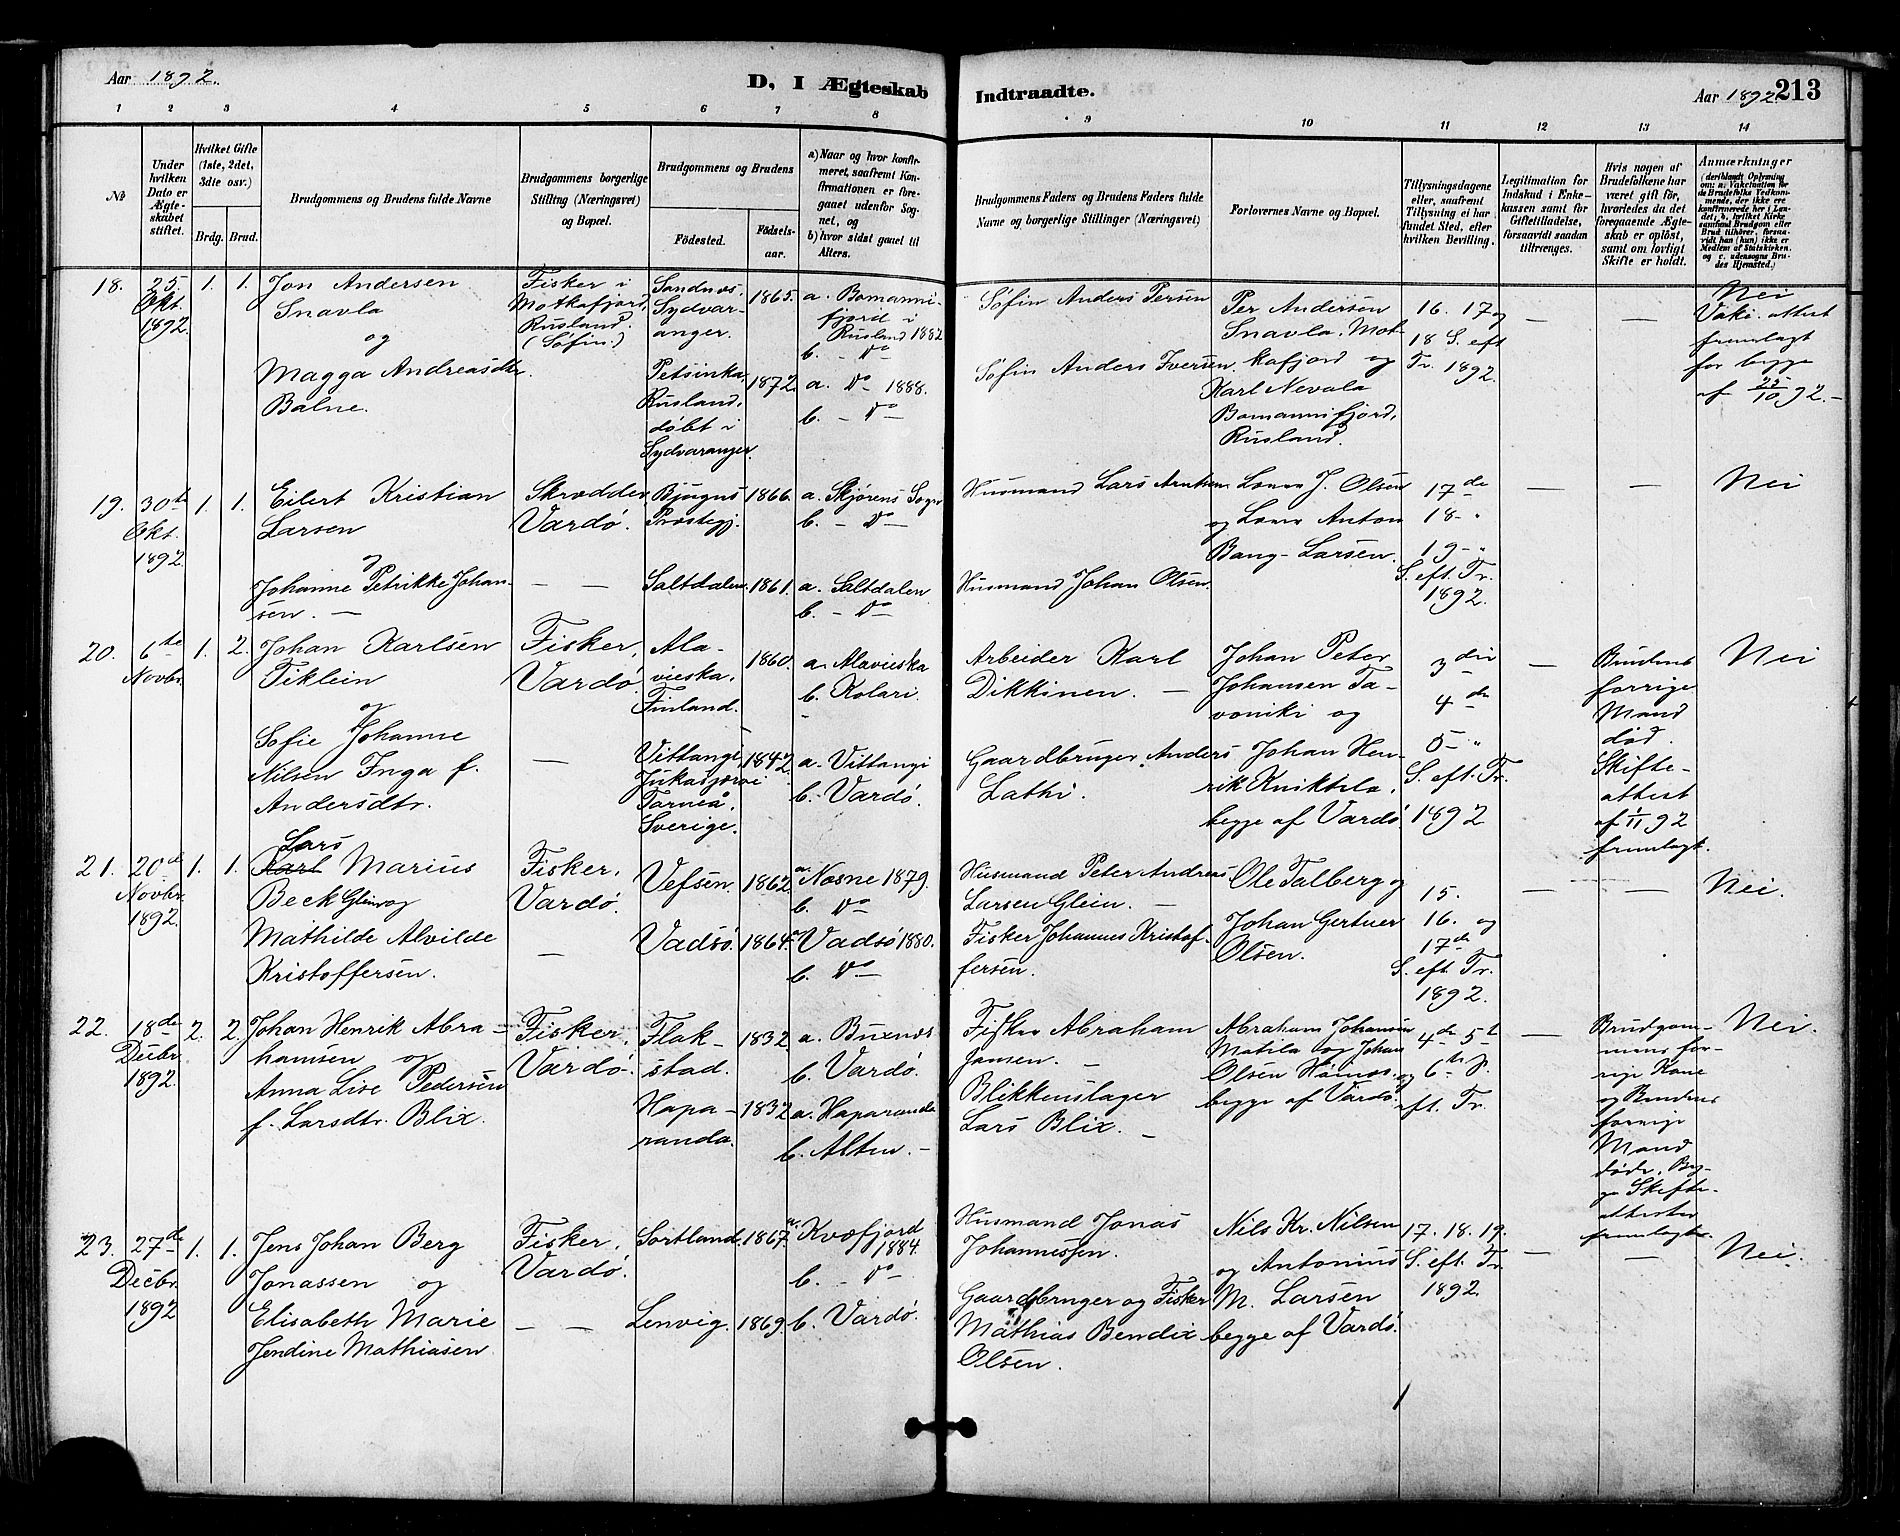 Aar 1892.
D, I Ægteskab Indtraadte.
Aar 1892. 213
1 2 3 4 5 6 7 8 9 10 11 12 13 14
No
Under hvilken Dato er Ægteskabet stiftet.
Hvilket Gifte (1ste, 2det, 3die osv.)
Brdg. Brud.
Brudgommens og Brudens fulde Navne
Brudgommens borgerlige Stilling (Næringsvei) og Bopæl.
Brudgommens og Brudens
Fødested.
Fødselsaar.
a) Naar og hvor konfirmeret, saafremt Konfirmationen er foregaaet udenfor Sognet, og
b) hvor sidst gaaet til Alters.
Brudgommens Faders og Brudens Faders fulde Navne og borgerlige Stillinger (Næringsvei)
Forlovernes Navne og Bopæl.
Tillysningsdagene eller, saafremt Tillysning ei har fundet Sted, efter hvilken Bevilling.
Legitimation for Indskud i Enkekassen samt for Giftetilladelse, forsaavidt saadan tiltrenges.
Hvis nogen af Brudefolkene har været gift før, hvorledes da det foregaaende Ægteskab er opløst, samt om lovligt Skifte er holdt.
Anmærkninger (deriblandt Oplysning om: a. Vakcination for de Brudefolks Vedkommende, der ikke ere konfirmerede her i Landet, b. hvilket Kirkesamfund Brudgom eller Brud tilhører, forsaavidt han (hun) ikke er Medlem af Statskirken, og c. udensogns Brudes Hjemsted.)
18.
25.
Okt.
1892.
1. 1.
Jon Andersen
Snavla
og
Magga Andreasdtr
Balne.
Fisker i
Motkafjord,
Rusland.
(Søfin.)
Sandnes.
Sydvar-
anger.
Petsinka
Rusland,
døbt i
Sydvaranger.
1865.
1872
a. Bomanni-
fjord i
Rusland 1882
b. - Do
a. Do 1888.
b. - Do
Søfin Anders Persen
Søfin Anders Iversen.
Per Andersen
Snavla, Mot-
kafjord og
Karl Nevala
Bomannifjord,
Rusland.
16. 17 og
18 S. eft
Tr. 1892.
—
—
Nei
Vakc. attest
fremlagt
for begge
af 25/10 92. -
19.
30te
Okt.
1892
1. 1.
Eilert Kristian
Larsen
og
Johanne Petrikke Johan-
sen. —
Skrædder
Vardø.
— —
Bjugns
Præstegj.
Saltdalen.
1866.
1861.
a. Skjørens Sogn
b. - Do
a. Saltdalen
b. - Do
Husmand Lars Arntsen
Husmand Johan Olsen.
J. Olsen
og Anton
Bang-Larsen.
17de
18- "
19- "
S. eft. Tr.
1892.
—
—
Nei
20.
6te
Novbr.
1. 2.
Johan Karlsen
Tiklein
og
Sofie Johanne
Nilsen Inga f.
Andersdtr.
Fisker,
Vardø.
—
Ala-
vieska,
Finland.
Vittangi,
Jukasjærvi
Torneå,
Sverige.
1860.
1842.
a. Alavieska
b. Kolari.
a. Vittangi
b. Vardø.
Arbeider Karl
Dikkinen. —
Gaardbruger Anders
Lathi.
Johan Peter
Johansen Ta-
voniki og
Johan Hen-
rik Kniktila,
begge af Vardø
3die
4de
5- "
S. eft. Tr.
1892
—
Brudens
forrige
Mand
død.
Skifte-
attest
af 1/11 92
fremlagt.
Nei
21.
20de
Novbr.
1892.
1. 1.
Lars
Karl Marius
Beck Glein og
Mathilde Alvilde
Kristoffersen.
Fisker,
Vardø.
—
Vefsen.
Vadsø.
1862
1864.
a. Næsne 1879.
b. Do
a. Vadsø 1880.
b. Do
Husmand Peter Andreas
Larsen Glein. —
Fisker Johannes Kristof-
fersen.
Ole Talberg og
Johan Gertner
Olsen.
15.
16. og
17de
S. eft. Tr.
1892.
—
—
Nei.
22.
18de
Decbr.
1892.
2. 2.
Johan Henrik Abra-
hamsen og
Anna Lise Pedersen
f. Larsdtr. Blix.
Fisker,
Vardø.
Flak-
stad.
Hapa-
randa.
1832.
1832
a. Buxnæs
b. Vardø.
a. Haparanda
b. Alten. -
Fisker Abraham
Jansen. —
Blikkenslager
Lars Blix. —
Abraham Johansen
Matila og Johan
Olsen
begge af Vardø.
4de 5t
og 6te S.
eft. Tr.
—
Brudgom-
mens for-
rige Kone
og Brudens
forrige
Mand
døde. Beg-
ge Skifte-
attester
fremlagte.
Nei.
23.
27de
Decbr.
1892
1. 1.
Jens Johan Berg
Jonassen og
Elisabeth Marie
Jendine Mathiasen.
Fisker,
Vardø.
— —
Sortland.
Lenvig.
1867.
1869.
a. Kvæfjord
1884.
b. - Do
b. Vardø.
Husmand Jonas
Johannessen.
Gaardbruger og Fisker
Mathias Bendix
Olsen.
Nils Kr. Nilsen
og Antonius
M. Larsen
begge af Vardø.
17. 18. 19.
S. eft. Tr.
1892.
—
—
Nei.